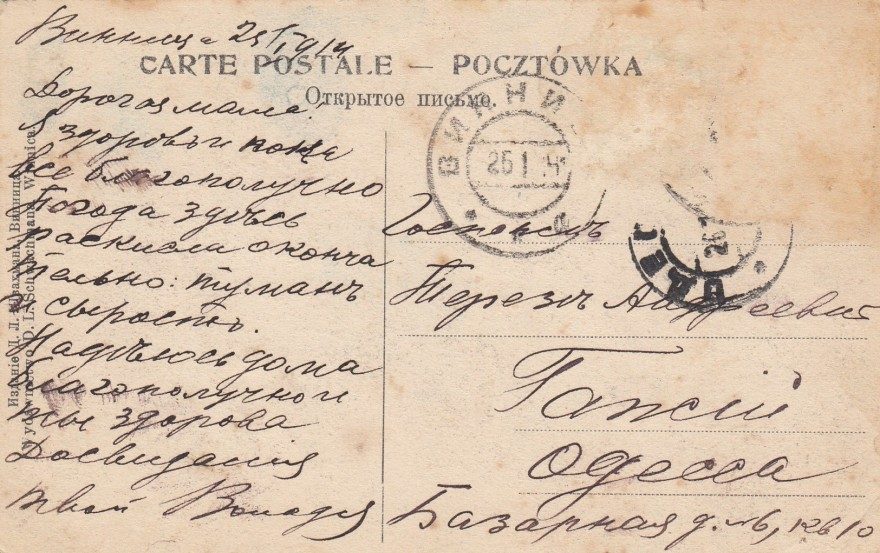 Винница 25/I 1914
CARTE POSTALE — POCZTÓWKA
Открытое письмо.
Дорогая мама.
Я здоровъ и пока
все благополучно
Погода здѣсь
раскисла оконча
тельно: туманъ
сырость.
Надѣюсь дома
благополучно и
ты здорова
Досвиданія
твой Володя
ВИННИ
25 1 14
Госпожѣ
Терезѣ Андреевнѣ
Одесса
Базарная д. №6, кв 10
ОДЕС
Изданіе Д. Л.
Винница